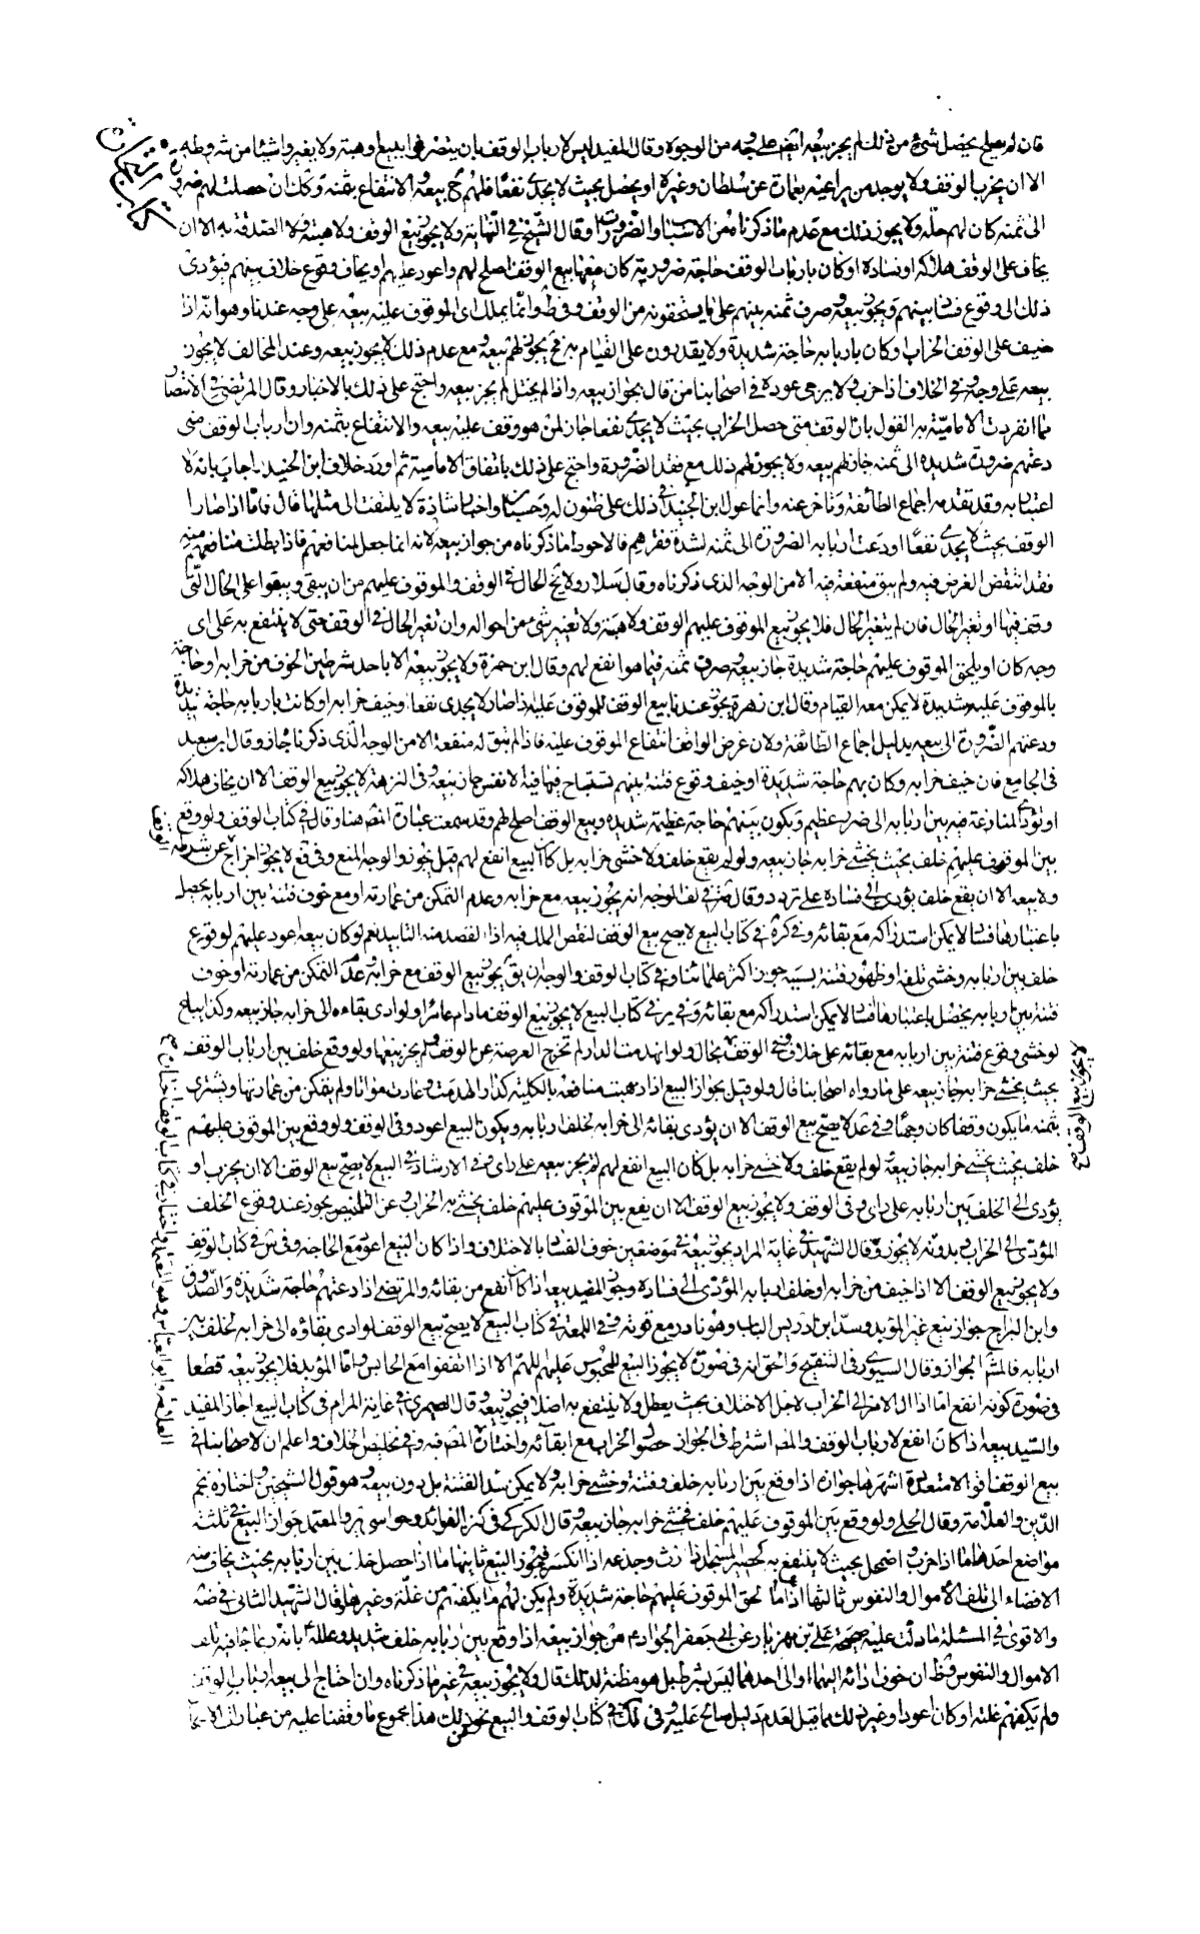 فان لم يحصل شيء من ذلك لم يجز بيعه ايضا على وجه من الوجوه وقال المفيد ليس لارباب الوقف بان يتصرفوا ببيع او هبة ولا يغيروا شيئا من شروطه
الا ان يخرب الوقف ولا يوجد من يراعيه بعمارة من سلطان وغيره او يحصل بحيث لا يجدى نفعا فلهم ح بيعه والانتفاع بثمنه وكك ان حصلت لهم ضرورة
الى ثمنه كان لهم حله ولا يجوز ذلك مع عدم ما ذكرناه من الاسباب والضرورات وقال الشيخ في النهاية ولا يجوز بيع الوقف ولا هبته ولا الصدقة به الا ان
يخاف على الوقف هلاكه او فساده او كان بارباب الوقف حاجة ضرورية كان معها بيع الوقف اصلح لهم واعود عليهم او يخاف وقوع خلاف بينهم فيؤدى
ذلك الى وقوع فساد بينهم ويجوز بيعه وصرف ثمنه بينهم على ما يستحقونه من الوقف وفي ط وانما يملك اى الموقوف عليه بيعه على وجه عندنا وهو انه اذا
خيف على الوقف الخراب او كان باربابه حاجة شديدة ولا يقدرون على القيام به فح يجوز لهم بيعه ومع عدم ذلك لا يجوز بيعه وعند المخالف لا يجوز
بيعه على وجه وفي الخلاف اذا خرب ولا يرجى عوده في اصحابنا من قال بجواز بيعه واذا لم يختل لم يجز بيعه واحتج على ذلك بالاخبار وقال المرتضى في الانتصار
مما انفردت الامامية به القول بان الوقف متى حصل الخراب بحيث لا يجدى نفعا جاز لمن هو وقف عليه بيعه والانتفاع بثمنه وان ارباب الوقف متى
دعتهم ضرورة شديدة الى ثمنه جاز لهم بيعه ولا يجوز لهم ذلك مع فقد الضرورة واحتج على ذلك باتفاق الامامية ثم اورد خلاف ابن الجنيد واجاب بانه لا
اعتبار به وقد تقدمه اجماع الطائفة وتاخر عنه وانما عول ابن الجنيد في ذلك على ظنون له وحسبان واخبار شاذة لا يلتفت الى مثلها قال فاما اذا صار
الوقف بحيث لا يجدى نفعا او دعت اربابه الضرورة الى ثمنه لشدة فقرهم فالاحوط ما ذكرناه من جواز بيعه لانه انما جعل لمنافعهم فاذا بطلت منافعهم منه
فقد انتقض الغرض فيه ولم يبق منفعة فيه الا من الوجه الذى ذكرناه وقال سلار ولا يخ الحال في الوقف والموقوف عليهم من ان يبقى ويبقوا على الحال التى
وقف فيها او تغير الحال فان لم يتغير الحال فلا يجوز بيع الموقوف عليهم الوقف ولا هبته ولا تغيير شيء من احواله وان تغير الحال في الوقف حتى لا ينتفع به على اى
وجه كان او يلحق الموقوف عليهم حاجة شديدة جاز بيعه وصرف ثمنه فيما هو انفع لهم وقال ابن حمزة ولا يجوز بيعه الا باحد شرطين الخوف من خرابه او حاجة
بالموقوف عليه شديدة لا يمكن معه القيام وقال ابن زهرة يجوز عندنا بيع الوقف للموقوف عليه اذا صار لا يجدى نفعا وخيف خرابه او كانت باربابه حاجة شديدة
ودعتهم الضرورة الى بيعه بدليل اجماع الطائفة ولان غرض الواقف انتفاع الموقوف عليه فاذا لم تبق له منفعة الا من الوجه الذى ذكرنا جاز وقال ابن سعيد
فى الجامع فان خيف خرابه وكان بهم حاجة شديدة او خيف وقوع فتنة بينهم تستباح فيها الانفس جاز بيعه وفى النزهة لا يجوز بيع الوقف الا ان يخاف هلاكه
او تؤدى المنازعة فيه بين اربابه الى ضرر عظيم ويكون بينهم حاجة عظيمة شديدة وبيع الوقف اصلح لهم وقد سمعت عبارة المص هنا وقال في كتاب الوقف ولو وقع
بين الموقوف عليهم خلف بحيث يخشى خرابه جاز بيعه ولو لم يقع خلف ولا خشى خرابه بل كان البيع انفع لهم قيل يجوز والوجه المنع وفي فع لا يجوز اخراج الوقف عن شرطه
ولا بيعه الا ان يقع خلف يؤدى الى فساده على تردد وقال في الوجه انه يجوز بيعه مع خرابه وعدم التمكن من عمارته او مع خوف فتنة بين اربابه يحصل
باعتبارها فساد لا يمكن استدراكه مع بقائه وفي كره في كتاب البيع لا يصح بيع الوقف لنقص الملك فيه اذ القصد منه التابيد نعم لو كان بيعه اعود عليهم لوقوع
خلف بين اربابه وخشى تلفه او ظهور فتنة بسببه جوز اكثر علمائنا وفي كتاب الوقف والوجه ان يق يجوز بيع الوقف مع خرابه وعدم التمكن من عمارته او خوف
فتنة بين اربابه يحصل باعتبارها فساد لا يمكن استدراكه مع بقائه وفي ير في كتاب البيع لا يجوز بيع الوقف ما دام عامرا ولو ادى بقاءه الى خرابه جاز بيعه وكذا يباع
لو خشى وقوع فتنة بين اربابه مع بقائه على خلاف وفي الوقف لا يجوز بيع الوقف بحال ولو انهدمت الدار لم تخرج العرصة عن الوقف ولم يجز بيعها ولو وقع خلف بين ارباب الوقف
بحيث يخشى خرابه جاز بيعه على ما رواه اصحابنا قال ولو قيل بجواز البيع اذا ذهبت منافعه بالكلية كدار انهدمت وعادت مواتا ولم يتمكن من عمارتها ويشترى
بثمنه ما يكون وقفا كان وجها وفي عد لا يصح بيع الوقف الا ان يؤدى بقائه الى خرابه لخلف اربابه ويكون البيع اعود وفى الوقف ولو وقع بين الموقوف عليهم
خلف بحيث يخشى خرابه جاز بيعه ولو لم يقع خلف ولا خشى خرابه بل كان البيع انفع لهم لم يجز بيعه على راى وفي الارشاد في البيع لا يصح بيع الوقف الا ان يخرب او
يؤدى الى الخلف بين اربابه على راى وفى الوقف ولا يجوز بيع الوقف الا ان يقع بين الموقوف عليهم خلف يخشى به الخراب وعن التلخيص يجوز عند وقوع الخلف
المؤدى الى الخراب وبدونه لا يجوز وقال الشهيد في غاية المراد يجوز بيعه في موضعين خوف الفساد بالاختلاف واذا كان البيع اعود مع الحاجة وفى س في كتاب الوقف
ولا يجوز بيع الوقف الا اذا خيف من خرابه او خلف اربابه المؤدى الى فساده وجوز المفيد بيعه اذا كان انفع من بقائه والمرتضى اذا دعتهم حاجة شديدة والصدوق
وابن البراج جواز بيع غير المؤبد وسد ابن ادريس الباب وهو نادر مع قوته وفي اللمعة في كتاب البيع لا يصح بيع الوقف ولو ادى بقاؤه الى خرابه لخلف بين
اربابه فالمش الجواز وقال السيورى فى التنقيح والحق انه في صورة لا يجوز البيع للمحبوس عليهم اللهم الا اذا اتفقوا مع الحابس واما المؤبد فلا يجوز بيعه قطعا
فى صورة كونه انفع اما اذا ال الامر الى الخراب لاجل الاختلاف بحيث يعطل ولا ينتفع به اصلا فيجوز بيعه وقال الصيمرى في غاية المرام فى كتاب البيع اجاز المفيد
والسيد بيعه اذا كان انفع لارباب الوقف والمص اشترط فى الجواز حصول الخراب مع ابقائه واختاره المص فيه وفي تخليص الخلاف واعلم ان لاصحابنا في
بيع الوقف اقوالا متعددة اشهرها جوازه اذا وقع بين اربابه خلف وفتنة وخشى خرابه ولا يمكن سد الفتنة بدون بيعه وهو قول الشيخين واختاره نجم
الدين والعلامة وقال الحلى ولو وقع بين الموقوف عليهم خلف فخشى خرابه جاز بيعه وقال الكركى فى كنز الفوائد وحواسى ير والمعتمد جواز البيع في ثلثة
مواضع احدها اذا خرب واضمحل بحيث لا ينتفع به كحصير المسجد اذا رث وجذعه اذا انكسر فيجوز البيع ثانيها ما اذا حصل خلف بين اربابه بحيث يخاف منه
الافضاء الى تلف الاموال والنفوس ثالثها اذا ما لحق الموقوف عليهم حاجة شديدة ولم يكن لهم ما يكفيهم من غلة وغيرها وقال الشهيد الثانى في ضه
والاقوى في المسئلة ما دلت عليه صحيحة على بن مهزيار عن ابى جعفر الجواد ع من جواز بيعه اذا وقع بين اربابه خلف شديد وعلله ع بانه ربما جاء فيه تلف
الاموال والنفوس وظ ان خوف ادائه اليهما او الى احدهما ليس بشرط بل هو مظنة لذلك قال ولا يجوز بيعه في غير ما ذكرناه وان احتاج الى بيعه ارباب الوقف
ولم يكفهم غلته او كان اعود او غير ذلك مما قيل لعدم دليل صالح عليه وفى لك في كتاب الوقف والبيع نحو ذلك هذا مجموع ما وقفنا عليه من عبارات الاصحاب
كتاب التجارات
لا يجوز بيع الوقف صح